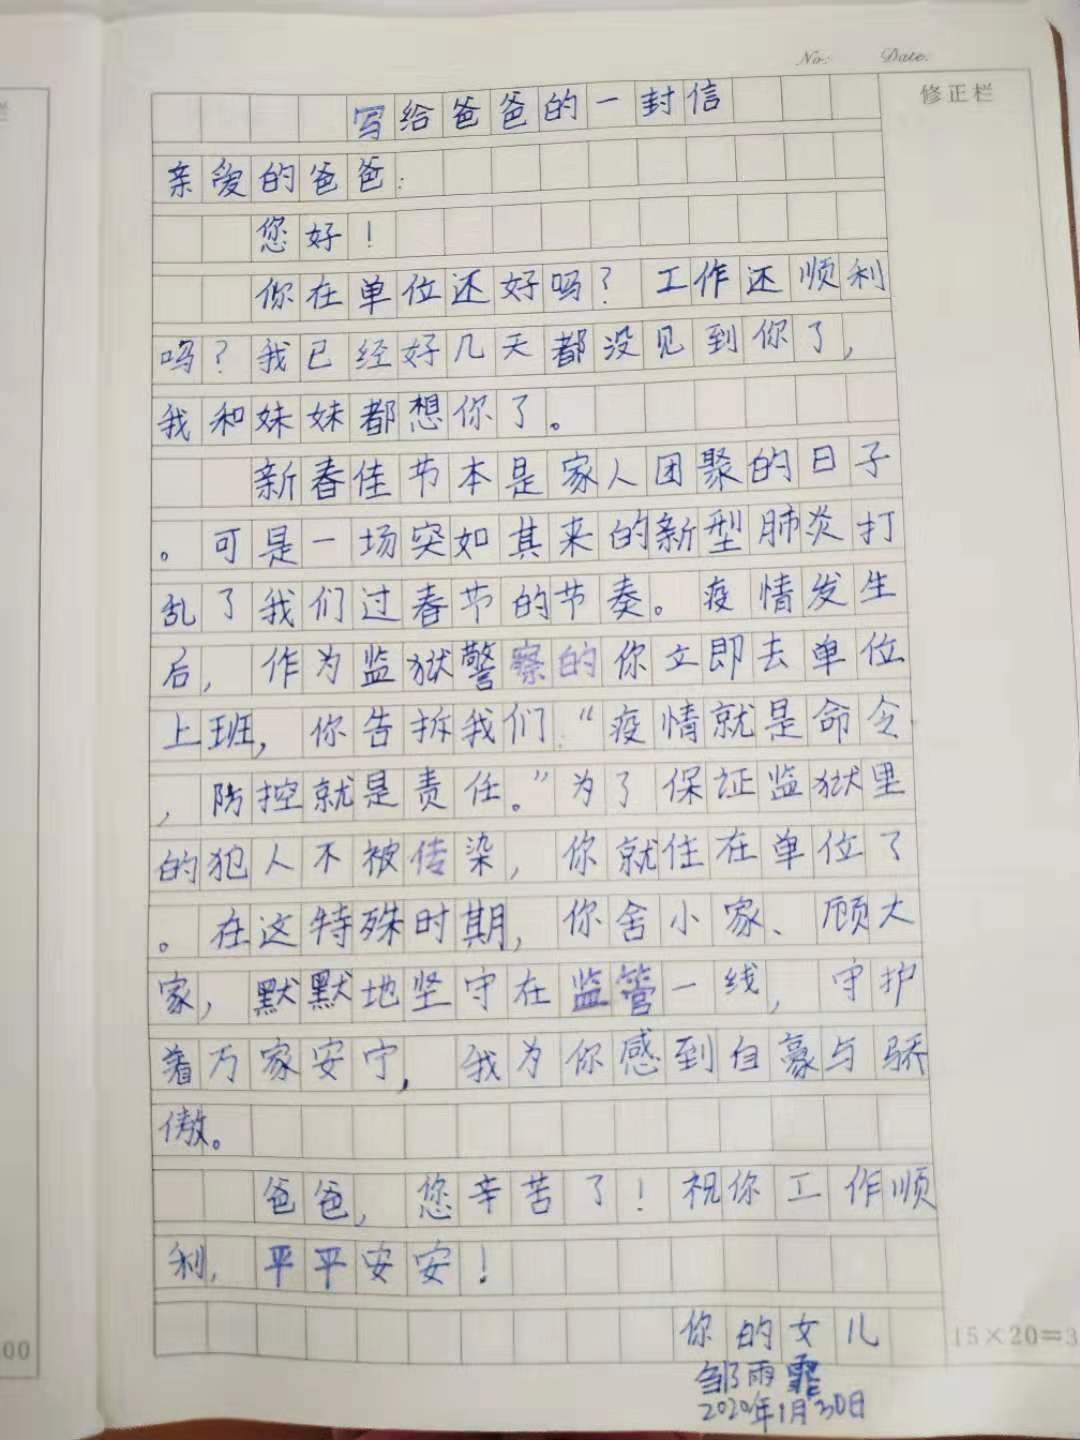 No. Date.
修正栏
写给爸爸的一封信
亲爱的爸爸:
您好!
你在单位还好吗?工作还顺利
吗?我已经好几天都没见到你了,
我和妹妹都想你了。
新春佳节本是家人团聚的日子
。可是一场突如其来的新型肺炎打
乱了我们过春节的节奏。疫情发生
后,作为监狱警察的你立即去单位
上班,你告拆我们“疫情就是命令
,防控就是责任。”为了保证监狱里
的犯人不被传染,你就住在单位了
。在这特殊时期,你舍小家、顾大
家,默默地坚守在监管一线,守护
着万家安宁,我为你感到自豪与骄
傲。
爸爸,您辛苦了!祝你工作顺
利,平平安安!
你的女儿
邹雨霏
2020年1月30日
15×20=3
00